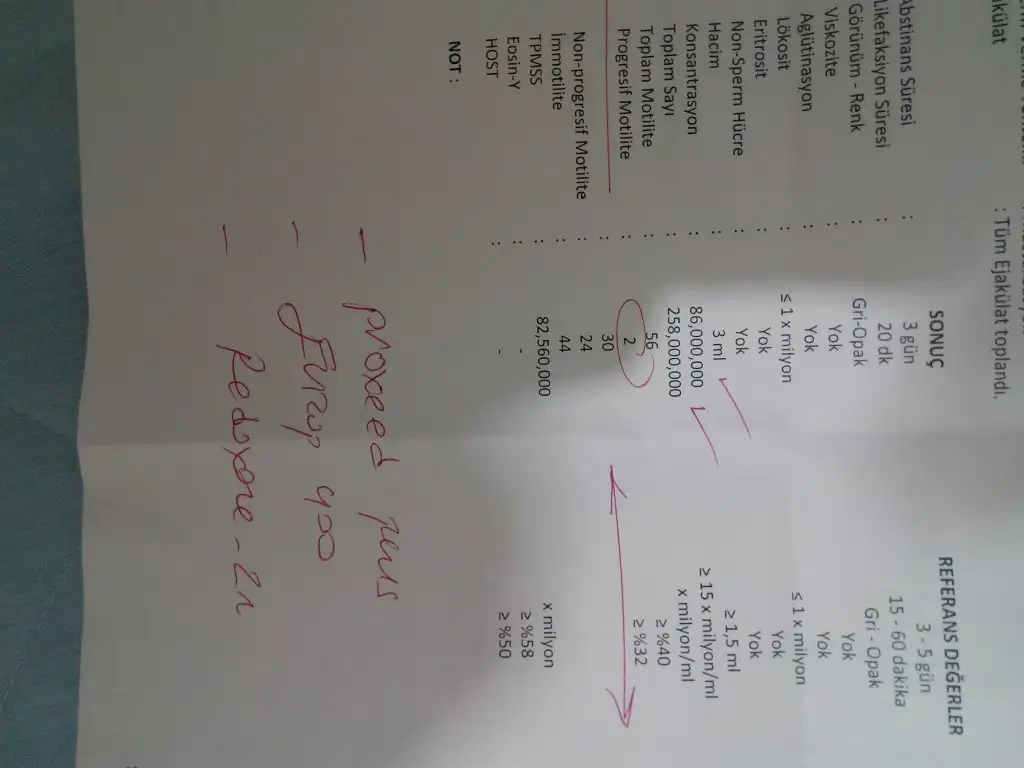 külat : Tüm Ejakülat toplandı.
SONUÇ REFERANS DEĞERLER
Abstinans Süresi : 3 gün 3 - 5 gün
Likefaksiyon Süresi : 20 dk 15 - 60 dakika
Görünüm - Renk : Gri-Opak Gri - Opak
Viskozite : Yok Yok
Aglütinasyon : Yok Yok
Lökosit : ≤ 1 x milyon ≤ 1 x milyon
Eritrosit : Yok Yok
Non-Sperm Hücre : Yok Yok
Hacim : 3 ml ≥ 1,5 ml
Konsantrasyon : 86,000,000 ≥ 15 x milyon/ml
Toplam Sayı : 258,000,000 x milyon/ml
Toplam Motilite : 56 ≥ %40
Progresif Motilite : 2 ≥ %32
: 30
Non-progresif Motilite : 24
İmmotilite : 44
TPMSS : 82,560,000 x milyon
Eosin-Y : - ≥ %58
HOST : - ≥ %50
NOT :
- proxeed plus
- 400
- Redoxone -